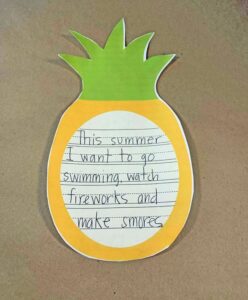 This summer
I want to go
swimming, watch
fireworks and
make smores